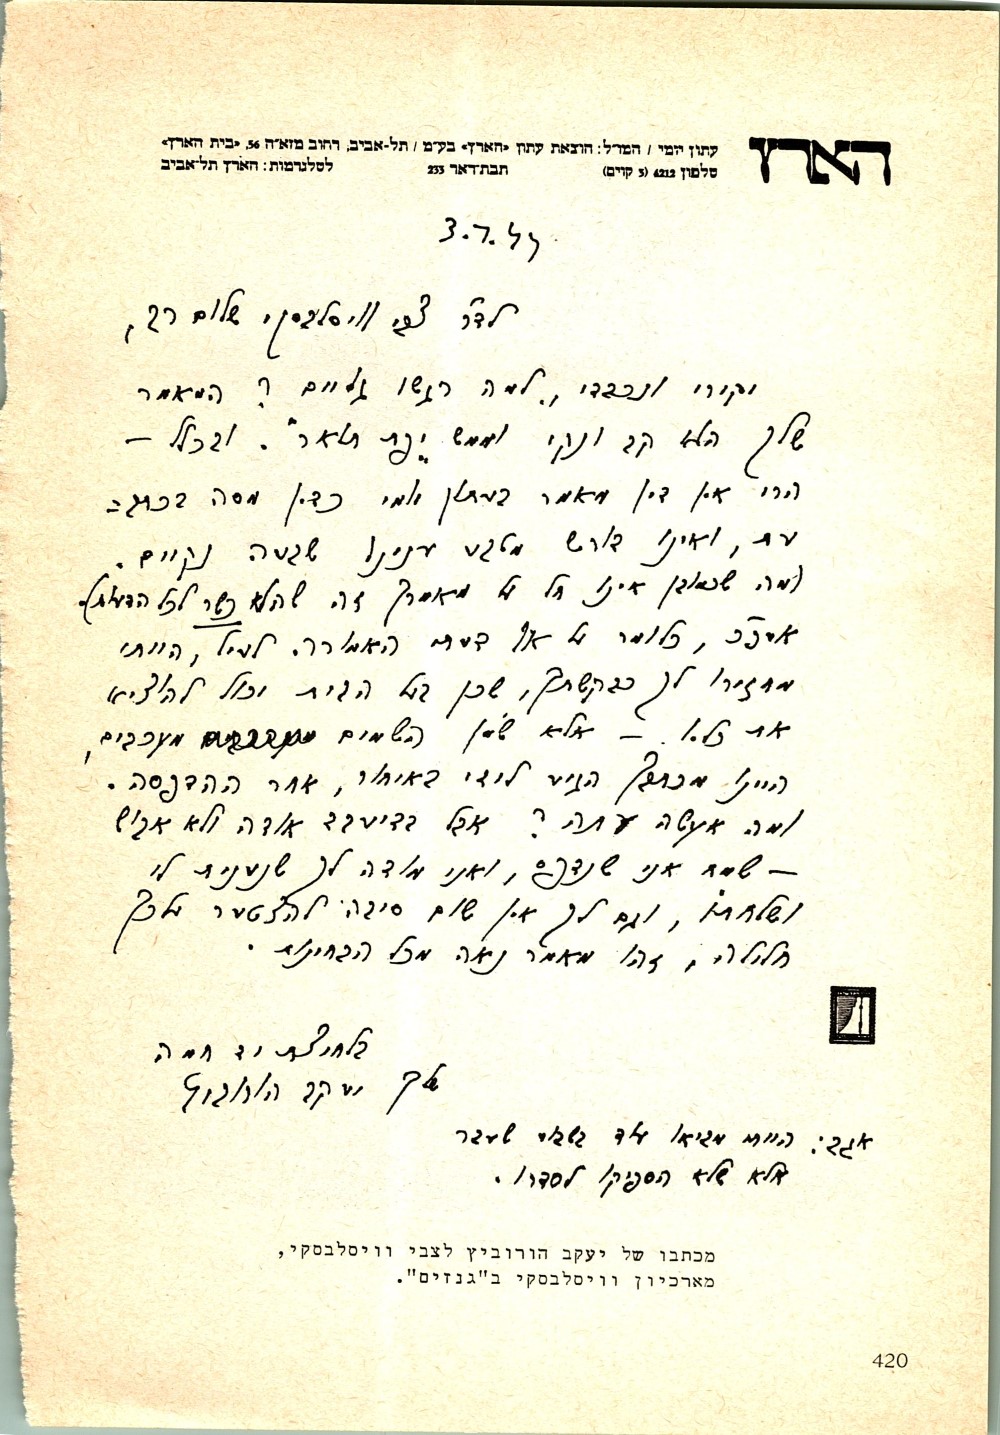 הארץ
עתון יומי / המו״ל: הוצאת עתון «הארץ» בע״מ / תל-אביב, רחוב מזא״ה 56, «בית הארץ»
טלפון 6212 (3 קוים) תבת־דאר 233 לטלגרמות: הארץ תל־אביב
3.7.44
לד״ר צבי וויסלבסקי שלום רב,
יקירי ונכבדי, למה רגשו גויים? המאמר
שלך הלא קב ונקי וממש „יפת תואר". ובכלל –
הרי אין דין מאמר בעתון יומי כדין מסה בכתב־
עת, ואינו דורש מטבע ענינו שבעה נקיים.
(ומה שכמובן אינו חל על מאמרך זה שהלא כשר לכל הדעות).
אעפ״כ, כלומר על אף דעתי האמורה לעיל, הייתי
מחזירו לך כבקשתך, שכן בעל הבית יכול להוציא
את כליו – אלא שמן השמים מעכבים,
היינו מכתבך הגיע לידי באיחור, אחר ההדפסה.
ומה אעשה עתה? אבל בדיעבד אודה ולא אבוש
– שמח אני שנדפס, ואני מודה לך שנענית לי
ושלחתו, וגם לך אין שום סיבה להצטער עליך
חלילה, זהו מאמר נאה מכל הבחינות.
בלחיצת יד חמה
שלך יעקב הורוביץ
אגב: הייתי מביאו עוד בשבוע שעבר
אלא שלא הספיקו לסדרו.
מכתבו של יעקב הורוביץ לצבי וויסלבסקי,
מארכיון וויסלבסקי ב"גנזים".
420